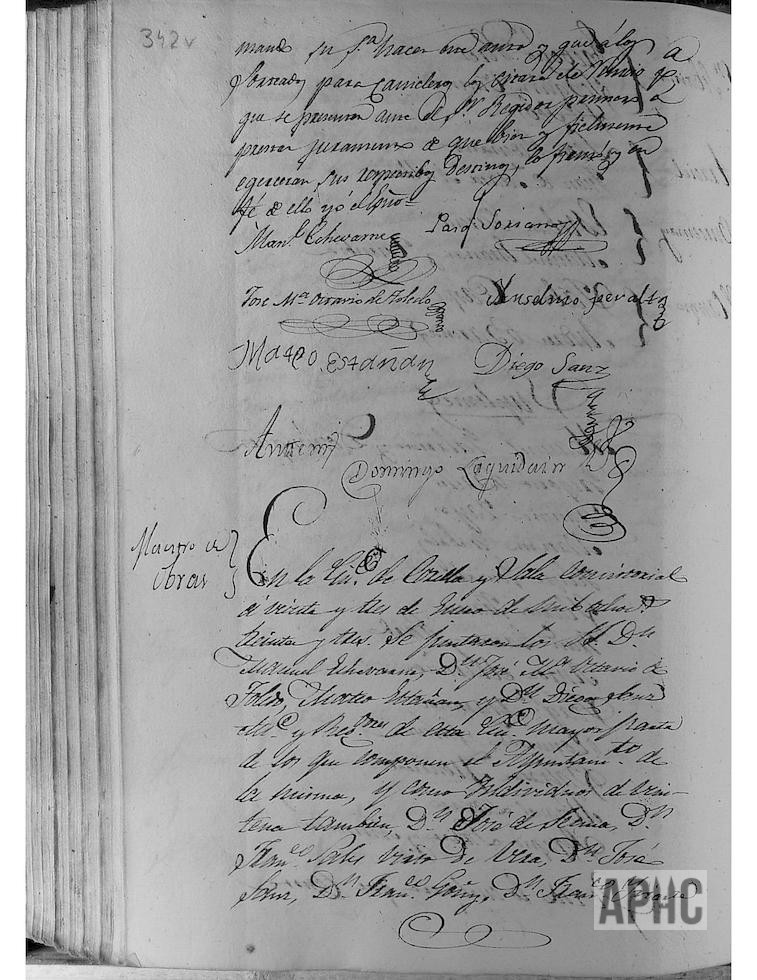 342v
mando su s.ª hacer este auto y que á los
para
que se presenten ante el S.r Regidor primero a
prestar juramento de que bien y fielmente
egerceran sus respectibos Destinos, lo firmó, y en
fé de ello yo el Essno=
Man.l Echevarria Pasq.l Soriano
Jose M.ª Octavio de Toledo Anselmo peralta
Mateo Estañan Diego Sanz
Antemi
Domingo Laquidain
Maestro de
obras
En la Ciu.d de Corella y Sala consistorial
á veinte y tres de Enero de mil ochoc.s
treinta y tres. Se juntaron los SS. D.n
Manuel Echevarria, D.n José M.ª Octavio de
Toledo, Mateo Estañan, y D.n Diego Sanz
Alc.e y Reg.res de esta Ciu.d mayor parte
de los que componen el Ayuntam.to de
la misma, y como Individuos de vein-
tena tambien, D.n José de D.n
Fran.co Sales Virto de Vera, D.n José
Sanz, D.n Fran.co Goñi, D.n Fran.co
APHC